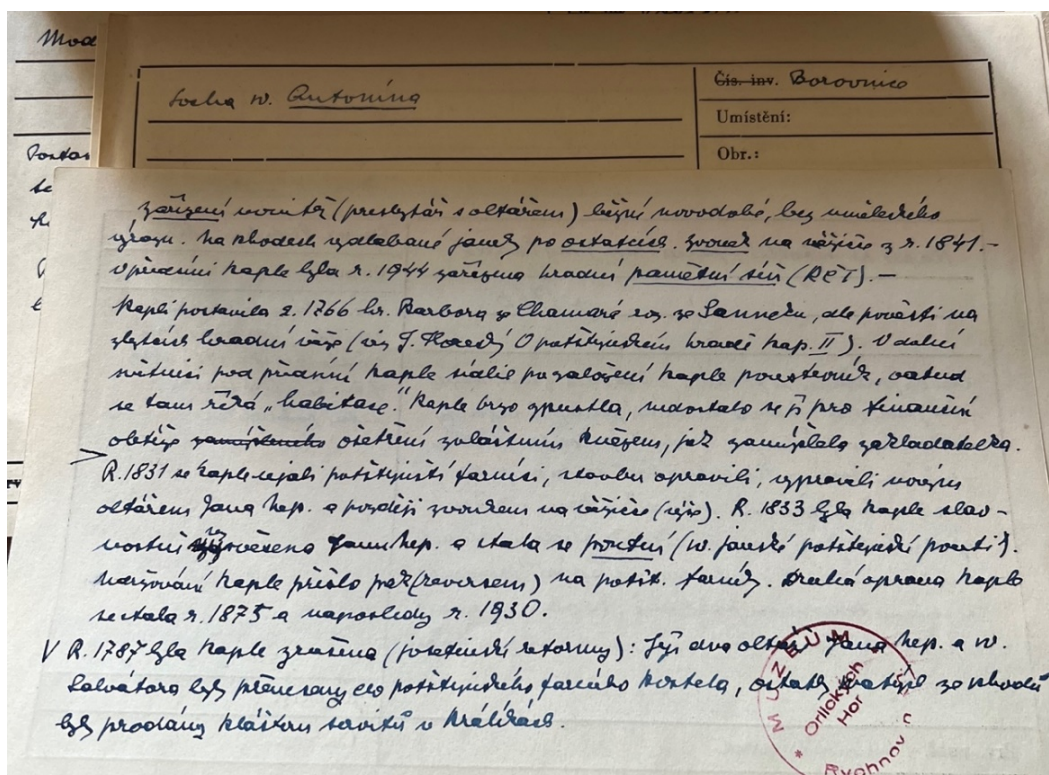 Mod
Socha sv. Antonína
Čís. inv. Borovnice
Umístění:
Obr.:
Postav
se
zařízení vnitřní (presbytář s oltářem) běžné novodobé, bez uměleckého
výrazu. Na schodech vydlabané jamky po ostatcích. Zvonek na vížce z r. 1841.-
V přední kaple byla r. 1944 zařízena hradní pamětní síň (RČT).-
Kapli postavila r. 1766 hr. Barbora ze Chamaré roz. ze Sannetu, dle pověsti na
zbytcích hradní věže (viz J. Horecký O potštýnském hradě kap. II). V dolní
světnici pod přední kaple sídlil po založení kaple poustevník, odtud
se tam říká „habitace." Kaple brzo zpustla, nedostalo se jí pro finanční
obtíže zamýšleného ošetření zvláštním knězem, jak zamýšlela zakladatelka.
R. 1831 se kaple ujali potštýnští farníci, stavbu opravili, vypravili novým
oltářem Jana Nep. a později zvonkem na vížce (výše). R. 1833 byla kaple slav-
nostně svěcena Janu Nep. a stala se poutní (sv. janské potštejnské pouti).
Udržování kaple přišlo pak (reversem) na potšt. farníky. Druhá oprava kaple
se stala r. 1875 a naposledy r. 1930.
V R. 1787 byla kaple zrušena (josefinské reformy): Její dva oltáře Jana Nep. a sv.
Salvátora byly přeneseny do potštýnského farního kostela, ostatky svatých ze schodů
byly prodány klášteru servitů v Králíkách.
MUZEUM
Orlických
Hor
Rychnov n